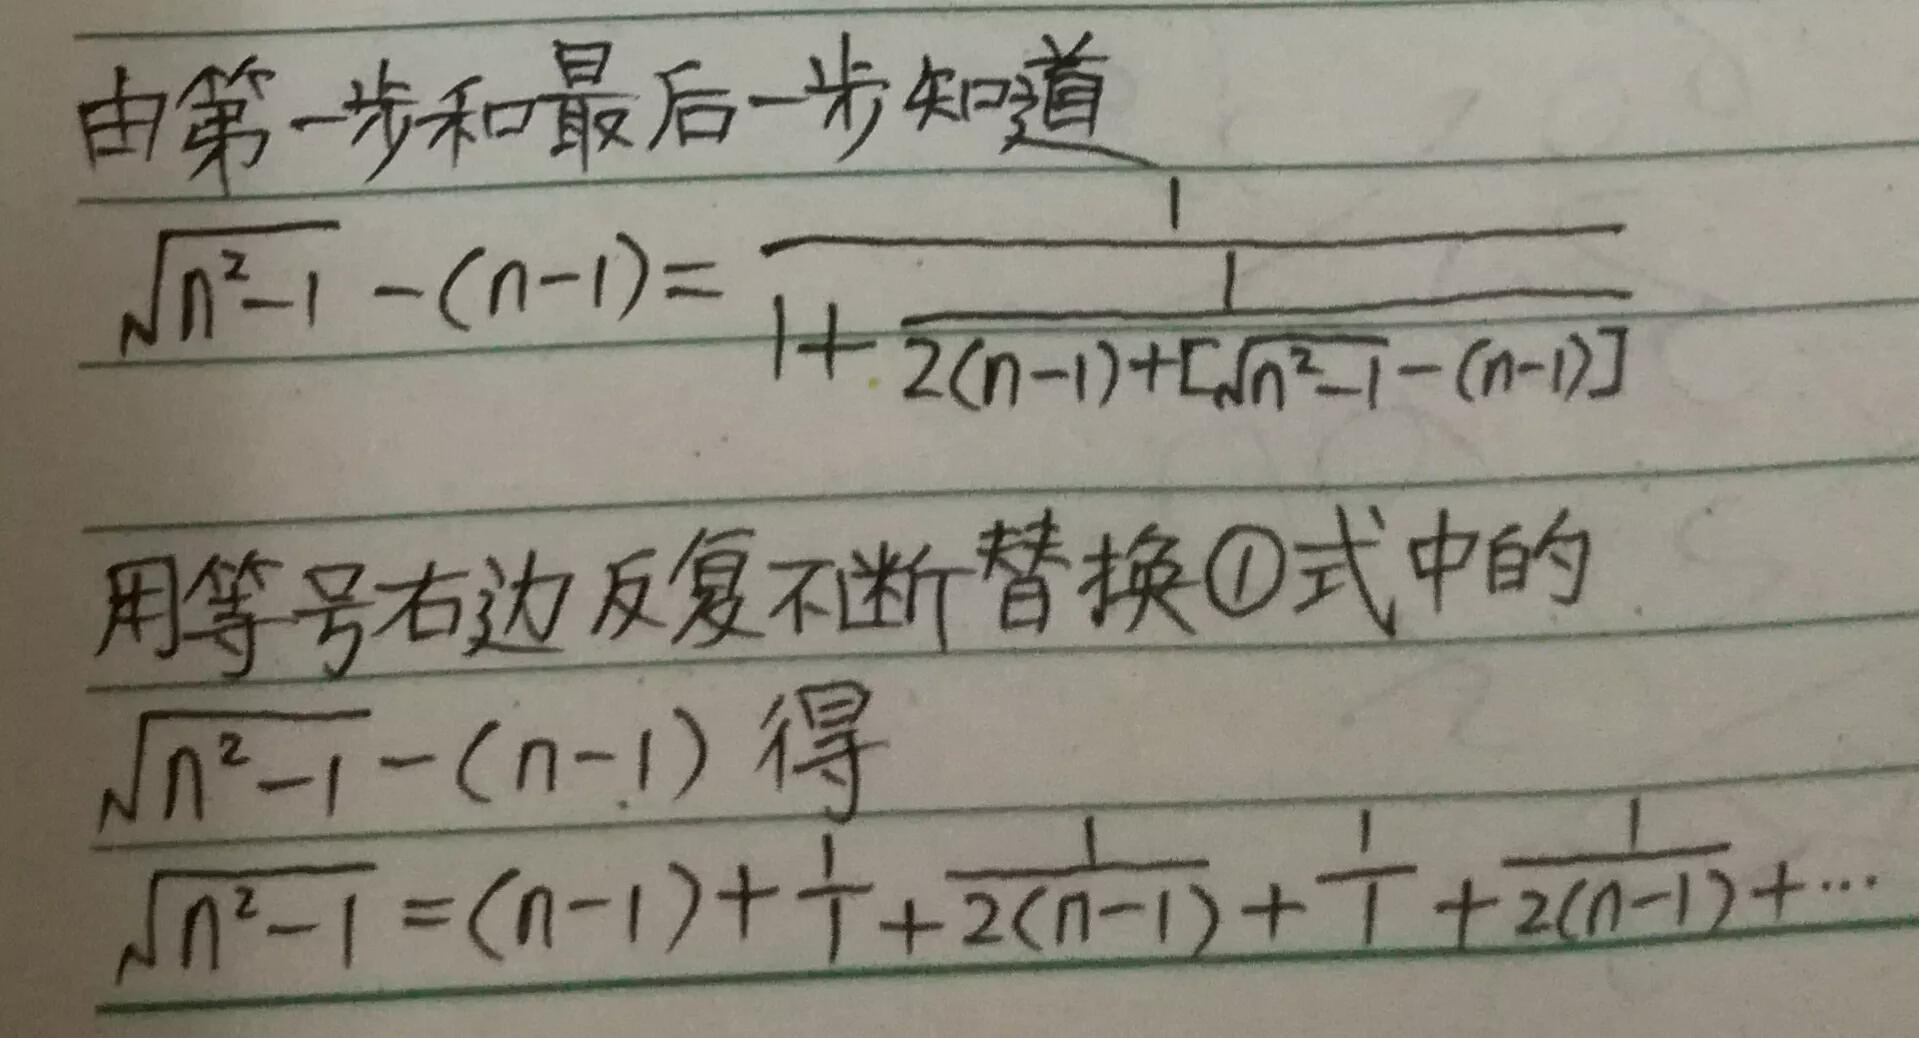 由第一步和最后一步知道
√(n²-1) - (n-1) = 1/(1+1/(2(n-1)+[√(n²-1)-(n-1)]))
用等号右边反复不断替换①式中的
√(n²-1) - (n-1) 得
√(n²-1) = (n-1) + 1/1 + 1/2(n-1) + 1/1 + 1/2(n-1) + ...